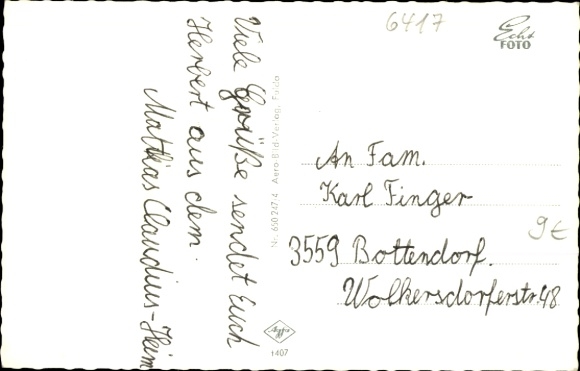 6417
Echt
FOTO
Viele Grüße sendet Euch
Herbert aus dem
Mathias Claudius-Heim
Nr. 650 247 4 Aero-Bild-Verlag, Fulda
An Fam.
Karl Finger
3559 Bottendorf.
Wolkersdorferstr. 48
9 €
Agfa
1407